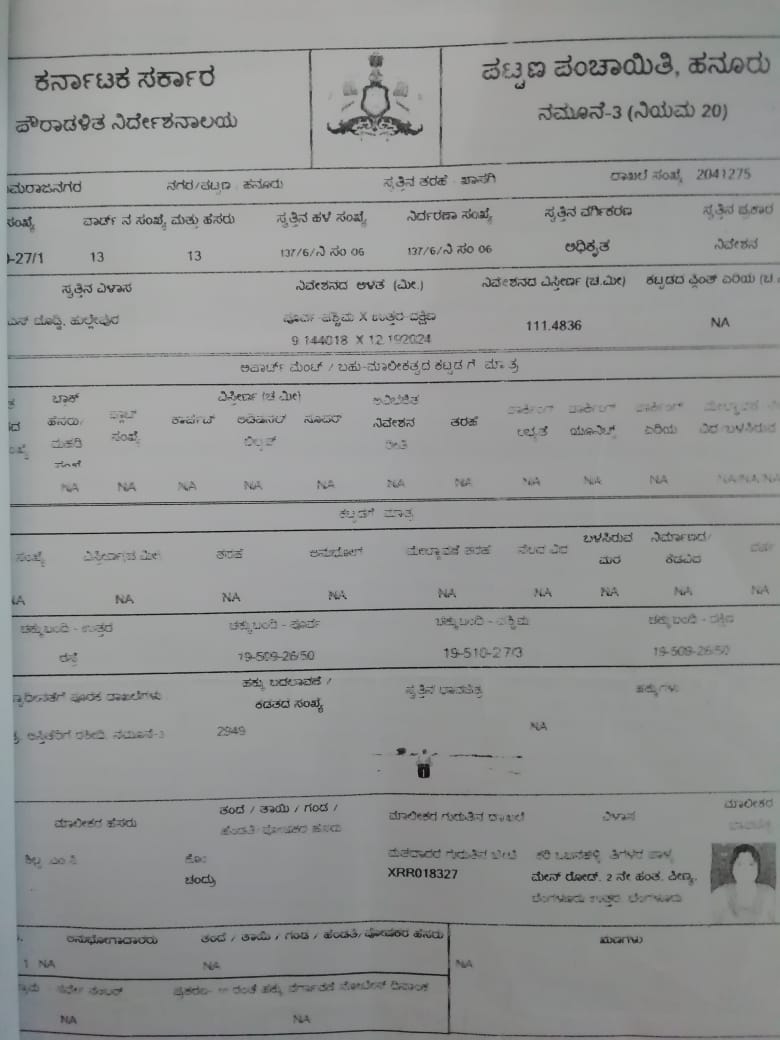 ಕರ್ನಾಟಕ ಸರ್ಕಾರ
ಪೌರಾಡಳಿತ ನಿರ್ದೇಶನಾಲಯ
ಪಟ್ಟಣ ಪಂಚಾಯಿತಿ, ಹನೂರು
ನಮೂನೆ-3 (ನಿಯಮ 20)
ಮರಾಜನಗರ ನಗರ/ಪಟ್ಟಣ ಹನೂರು ಸ್ವತ್ತಿನ ತರಹೆ ಖಾಸಗಿ ದಾಖಲೆ ಸಂಖ್ಯೆ 2041275
ಸಂಖ್ಯೆ ವಾರ್ಡ್ ನ ಸಂಖ್ಯೆ ಮತ್ತು ಹೆಸರು ಸ್ವತ್ತಿನ ಹಳೆ ಸಂಖ್ಯೆ ನಿರ್ದರಣಾ ಸಂಖ್ಯೆ ಸ್ವತ್ತಿನ ವರ್ಗಿಕರಣ ಸ್ವತ್ತಿನ ಪ್ರಕಾರ
-27/1 13 13 137/6/ನಿ ಸಂ 06 137/6/ನಿ ಸಂ 06 ಅಧಿಕೃತ ನಿವೇಶನ
ಸ್ವತ್ತಿನ ವಿಳಾಸ ನಿವೇಶನದ ಅಳತೆ (ಮೀ.) ನಿವೇಶನದ ವಿಸ್ತೀರ್ಣ (ಚ.ಮೀ) ಕಟ್ಟಡದ ಪ್ಲಿಂತ್ ಏರಿಯ (ಚ.
ಎಸ್ ದೊಡ್ಡಿ, ಹುಲ್ಲೇಪುರ ಪೂರ್ವ-ಪಶ್ಚಿಮ X ಉತ್ತರ-ದಕ್ಷಿಣ
9.144018 X 12.192024 111.4836 NA
ಅಪಾರ್ಟ್ ಮೆಂಟ್ / ಬಹು-ಮಾಲೀಕತ್ವದ ಕಟ್ಟಡ ಗೆ ಮಾತ್ರ
ಬ್ಲಾಕ್ ವಿಸ್ತೀರ್ಣ (ಚ ಮೀ) ಅವಿಭಜಿತ
ಹೆಸರು/ ಫ್ಲಾಟ್ ಕಾರ್ಪೆಟ್ ಅಡಿಷನಲ್ ಸೂಪರ್ ನಿವೇಶನ ತರಹೆ ಪಾರ್ಕಿಂಗ್ ಪಾರ್ಕಿಂಗ್ ಪಾರ್ಕಿಂಗ್
ಮಹಡಿ ಸಂಖ್ಯೆ ಬಿಲ್ಟಪ್ ರೀತಿ ಲಭ್ಯತೆ ಯೂನಿಟ್ಸ್ ಏರಿಯ ವಿಧ/ಬಳಸಿರುವ
NA NA NA NA NA NA NA NA NA NA NA/NA/NA
ಕಟ್ಟಡಗೆ ಮಾತ್ರ
ಸಂಖ್ಯೆ ವಿಸ್ತೀರ್ಣ(ಚ ಮೀ) ತರಹೆ ಅನುಭೋಗ್ ಮೇಲ್ಚಾವಣಿ ತರಹೆ ನೆಲದ ವಿಧ ಬಳಸಿರುವ ಮರ ನಿರ್ಮಾಣದ/ ಕೆಡವಿದ
NA NA NA NA NA NA NA NA NA
ಚಕ್ಕುಬಂದಿ - ಉತ್ತರ ಚಕ್ಕುಬಂದಿ - ಪೂರ್ವ ಚಕ್ಕುಬಂದಿ - ಪಶ್ಚಿಮ ಚಕ್ಕುಬಂದಿ - ದಕ್ಷಿಣ
ರಸ್ತೆ 19-509-26/50 19-510-27/3 19-509-26/50
ಪೂರಕ ದಾಖಲೆಗಳು ಹಕ್ಕು ಬದಲಾವಣೆ / ಕಡತದ ಸಂಖ್ಯೆ ಸ್ವತ್ತಿನ ಭಾವಚಿತ್ರ ಹಕ್ಕುಗಳು
ರಶೀದಿ, ನಮೂನೆ-3 2949 NA
ಮಾಲೀಕರ ಹೆಸರು ತಂದೆ / ತಾಯಿ / ಗಂಡ / ಹೆಂಡತಿ/ಪೋಷಕರ ಹೆಸರು ಮಾಲೀಕರ ಗುರುತಿನ ದಾಖಲೆ ವಿಳಾಸ ಮಾಲೀಕರ
ಶಿಲ್ಪ ಎಂ ಸಿ ಕೋಂ ಮತದಾರರ ಗುರುತಿನ ಚೀಟಿ
ಚಂದ್ರು XRR018327 ಮೇನ್ ರೋಡ್, 2 ನೇ ಹಂತ, ಪೀಣ್ಯ,
ಬೆಂಗಳೂರು ಉತ್ತರ, ಬೆಂಗಳೂರು
ಅನುಭೋಗದಾರರು ತಂದೆ / ತಾಯಿ / ಗಂಡ / ಹೆಂಡತಿ/ಪೋಷಕರ ಹೆಸರು ಋಣಗಳು
1 NA NA NA
ಸರ್ವೇ ನಂಬರ್ ಹಕ್ಕು ವರ್ಗಾವಣೆ ನೋಟೀಸ್ ದಿನಾಂಕ
NA NA